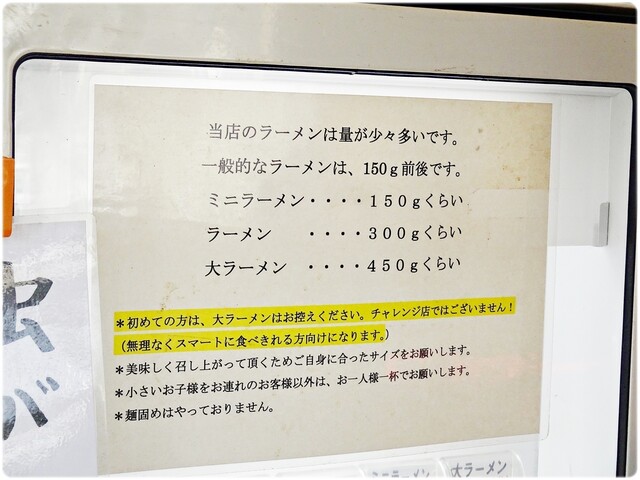 当店のラーメンは量が少々多いです。
一般的なラーメンは、150ｇ前後です。
ミニラーメン・・・・１５０ｇくらい
ラーメン　　・・・・３００ｇくらい
大ラーメン　・・・・４５０ｇくらい
＊初めての方は、大ラーメンはお控えください。チャレンジ店ではございません！
（無理なくスマートに食べきれる方向けになります。）
＊美味しく召し上がって頂くためご自身に合ったサイズをお願いします。
＊小さいお子様をお連れのお客様以外は、お一人様一杯でお願いします。
＊麺固めはやっておりません。
が
ミニラーメン
大ラーメン